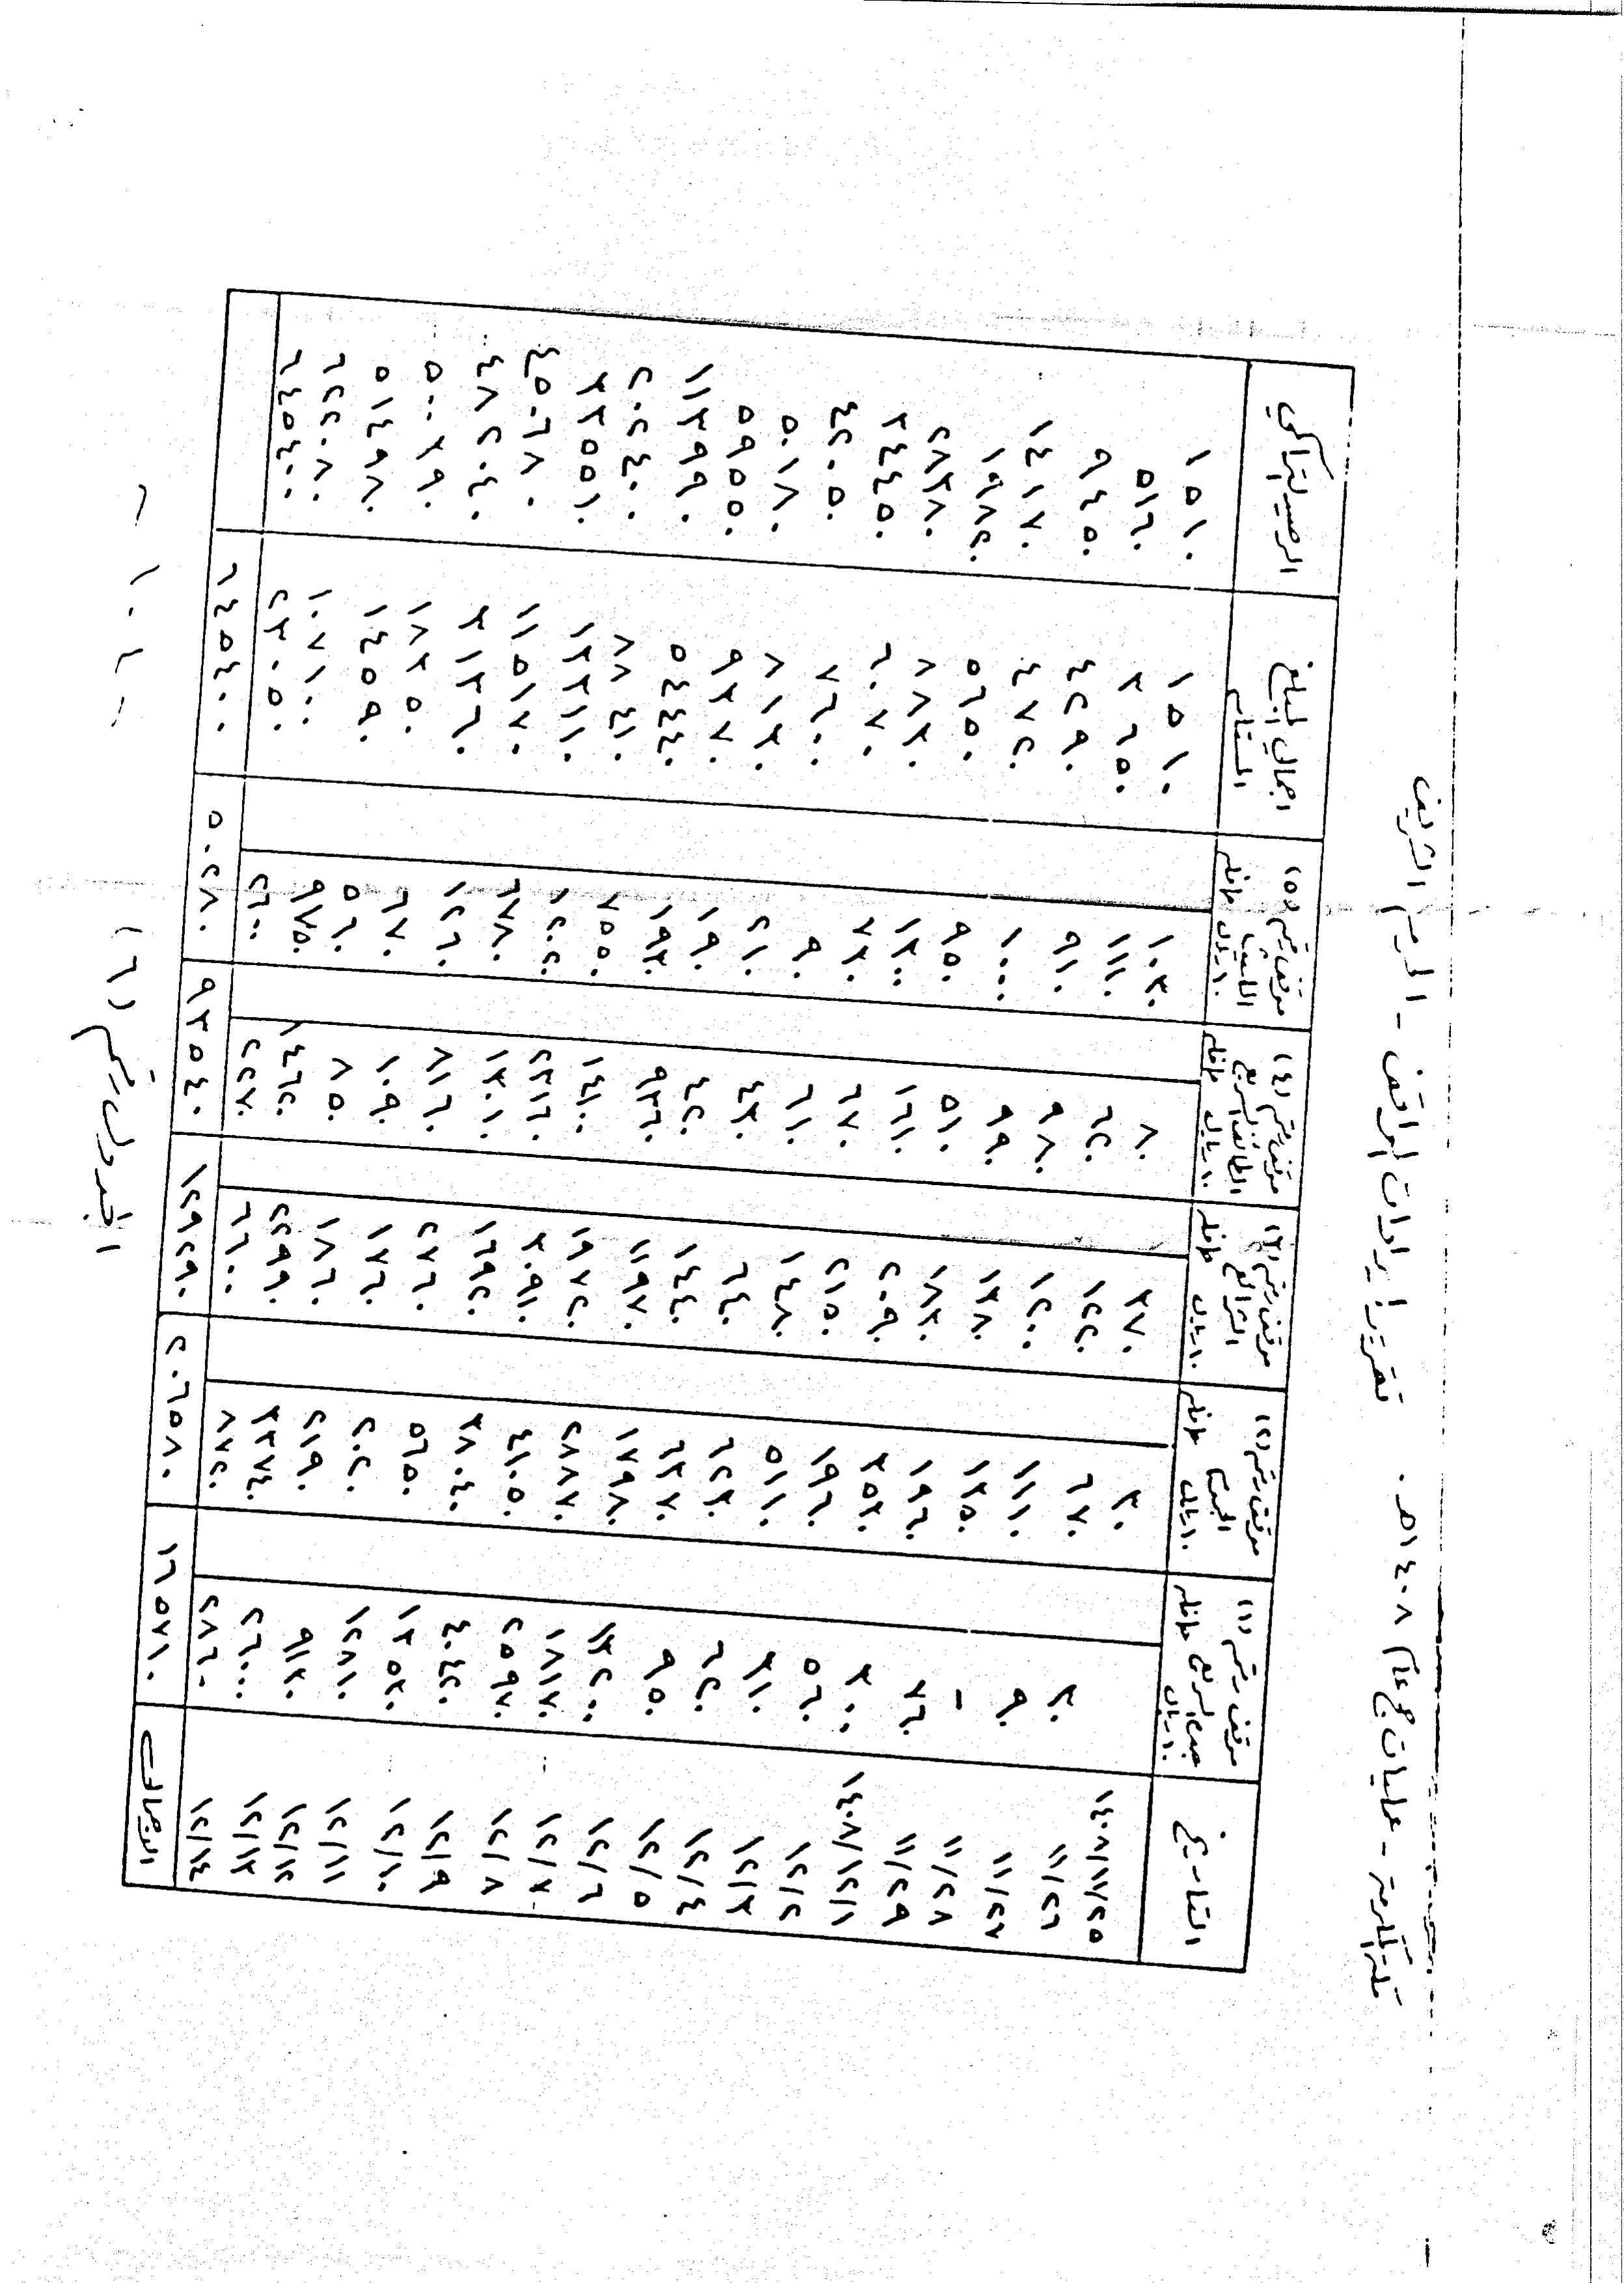 مكة المكرمة - عمليات حج عام ١٤٠٨هـ . تقرير إيرادات المواقف - الحرم الشريف
التاريخ | موقف رقم (١) جدة السريع ١٠ ريال حافلة | موقف رقم (٢) الجموم ١٠ ريال حافلة | موقف رقم (٣) الشرائع ١٠ ريال حافلة | موقف رقم (٤) الطائف السريع ١٠ ريال حافلة | موقف رقم (٥) الليث ١٠ ريال حافلة | اجمالي المبلغ المستلم | الرصيد التراكمي
١٤٠٨/١١/٢٥ | | ٣٠ | ٣٧٠ | ٨٠ | ١٠٣٠ | ١٥١٠ | ١٥١٠
١١/٢٦ | ٣٠ | ٦٧٠ | ١٢٢٠ | ٦٢٠ | ١١١٠ | ٣٦٥٠ | ٥١٦٠
١١/٢٧ | ٩٠ | ١١١٠ | ١٢٠٠ | ٩٨٠ | ٩١٠ | ٤٢٩٠ | ٩٤٥٠
١١/٢٨ | - | ١٣٥٠ | ١٣٨٠ | ٩٩٠ | ١٠٠٠ | ٤٧٢٠ | ١٤١٧٠
١١/٢٩ | ٣٦٠ | ١٩٦٠ | ١٨٧٠ | ٥١٠ | ٩٥٠ | ٥٦٥٠ | ١٩٨٢٠
١٤٠٨/١٢/١ | ٣٠٠ | ٣٥٣٠ | ٢٠٩٠ | ١٦١٠ | ١٣٠٠ | ٨٨٣٠ | ٢٨٣٨٠
١٢/٢ | ٥٦٠ | ١٩٦٠ | ٢١٥٠ | ٦٧٠ | ٧٣٠ | ٦٠٧٠ | ٣٤٤٥٠
١٢/٣ | ٣١٠ | ٥١١٠ | ١٤٨٠ | ٦١٠ | ٩٠ | ٧٦٠٠ | ٤٢٠٥٠
١٢/٤ | ٦٢٠ | ٦٢٣٠ | ٦٤٠ | ٤٣٠ | ٢١٠ | ٨١٣٠ | ٥٠١٨٠
١٢/٥ | ٩٥٠ | ٦٣٧٠ | ١٤٤٠ | ٤٢٠ | ١٩٠ | ٩٣٧٠ | ٥٩٥٥٠
١٢/٦ | ١٣٢٠٠ | ١٧٩٨٠ | ١١٩٧٠ | ٩٣٦٠ | ١٩٣٠ | ٥٤٤٤٠ | ١١٣٩٩٠
١٢/٧ | ١٨١٧٠ | ٢٨٨٧٠ | ١٩٧٢٠ | ١٤١٠٠ | ٧٥٥٠ | ٨٨٤١٠ | ٢٠٢٤٠٠
١٢/٨ | ٢٥٩٧٠ | ٤١٠٥٠ | ٣٠٩١٠ | ٢٣١٦٠ | ١٢٠٢٠ | ١٣٣١١٠ | ٣٣٥٥١٠
١٢/٩ | ٤٠٤٢٠ | ٣٨٠٤٠ | ١٦٩٢٠ | ١٣٠١٠ | ٦٧٨٠ | ١١٥١٧٠ | ٤٥٠٦٨٠
١٢/١٠ | ١٣٥٣٠ | ٥٦٥٠ | ٢٧٦٠ | ٨١٦٠ | ١٢٦٠ | ٣١٣٦٠ | ٤٨٢٠٤٠
١٢/١١ | ١٢٨١٠ | ٢٠٢٠ | ١٧٦٠ | ١٠٩٠ | ٦٧٠ | ١٨٣٥٠ | ٥٠٠٣٩٠
١٢/١٢ | ٩١٣٠ | ٢١٩٠ | ١٨٦٠ | ٨٥٠ | ٥٦٠ | ١٤٥٩٠ | ٥١٤٩٨٠
١٢/١٣ | ٢٦٠٠٠ | ٣٣٧٤٠ | ٢٢٩٩٠ | ١٤٦٢٠ | ٩٧٥٠ | ١٠٧١٠٠ | ٦٢٢٠٨٠
١٢/١٤ | ٢٨٦٠ | ٨٧٢٠ | ٦٦٠٠ | ٢٢٧٠ | ٢٦٠٠ | ٢٣٠٥٠ | ٦٤٥٤٠٠
الاجمالي | ١٦٥٧١٠ | ٢٠٦٥٨٠ | ١٢٩٢٩٠ | ٩٣٥٤٠ | ٥٠٢٨٠ | ٦٤٥٤٠٠
الجدول رقم (٦)
- ١٠١ -